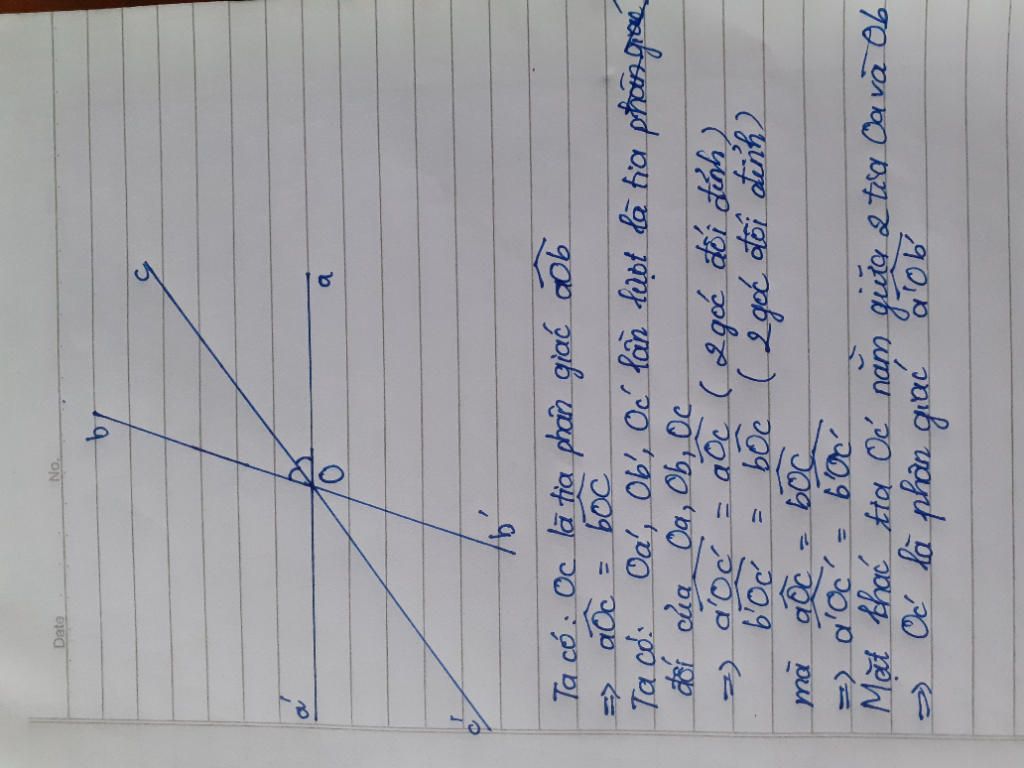 No.
Date
b
c
a
O
a'
c'
b'
Ta có: Oc là tia phân giác aOb
=> aOc = bOc
Ta có: Oa', Ob', Oc' lần lượt là tia phân giác
đối của Oa, Ob, Oc
=> a'Oc' = aOc ( 2 góc đối đỉnh )
b'Oc' = bOc ( 2 góc đối đỉnh )
mà aOc = bOc
=> a'Oc' = bOc'
Mặt khác tia Oc' nằm giữa 2 tia Oa và Ob
=> Oc' là phân giác a'Ob